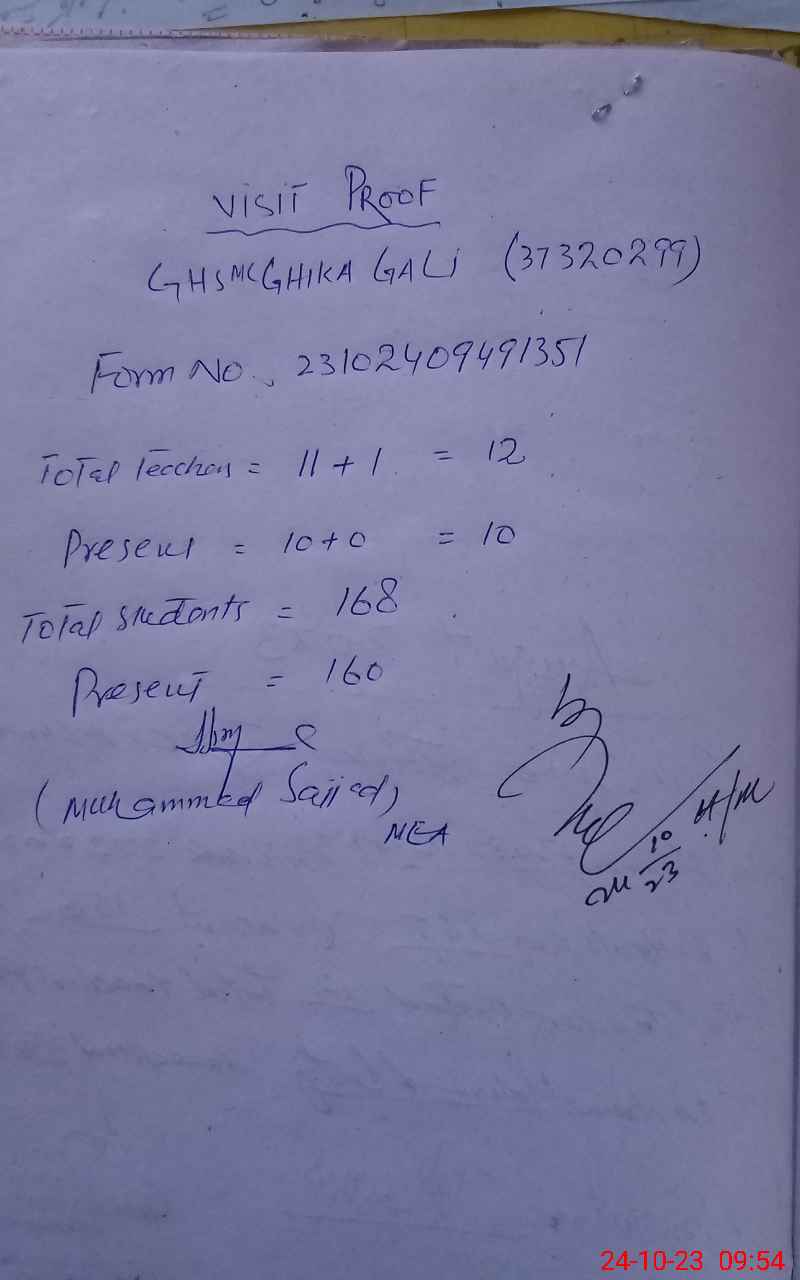 VISIT PROOF
GHSMC GHIKA GALI (37320299)
Form No. 23102409491351
Total Teachers = 11 + 1 = 12
Present = 10 + 0 = 10
Total Students = 168
Present = 160
(Muhammad Sajjad)
MEA
H/M
24 10/23
24-10-23 09:54